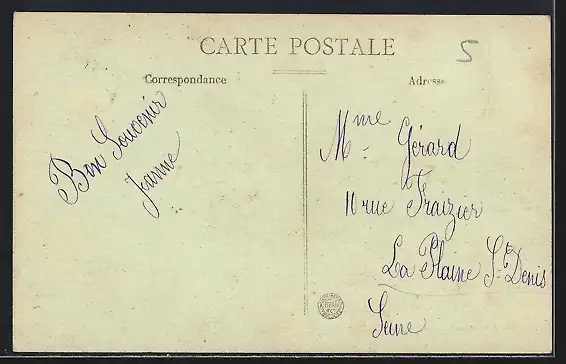 CARTE POSTALE
5
Correspondance
Adresse
Bon Souvenir
Jeanne
Mme Gérard
10 rue Fraizier
La Plaine St Denis
Seine